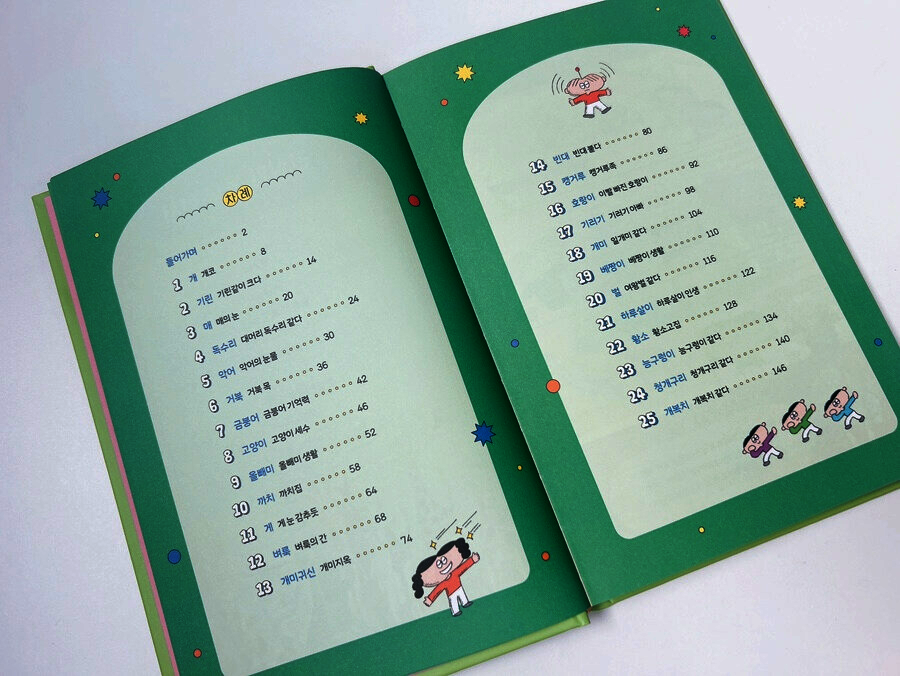 차례
들어가며 2
1 개 개코 8
2 기린 기린같이 크다 14
3 매 매의 눈 20
4 독수리 대머리 독수리 같다 24
5 악어 악어의 눈물 30
6 거북 거북목 36
7 금붕어 금붕어 기억력 42
8 고양이 고양이 세수 46
9 올빼미 올빼미 생활 52
10 까치 까치집 58
11 게 게 눈 감추듯 64
12 벼룩 벼룩의 간 68
13 개미귀신 개미지옥 74
14 빈대 빈대 붙다 80
15 캥거루 캥거루족 86
16 호랑이 이빨 빠진 호랑이 92
17 기러기 기러기 아빠 98
18 개미 일개미 같다 104
19 베짱이 베짱이 생활 110
20 벌 여왕벌 같다 116
21 하루살이 하루살이 인생 122
22 황소 황소고집 128
23 능구렁이 능구렁이 같다 134
24 청개구리 청개구리 같다 140
25 개복치 개복치 같다 146